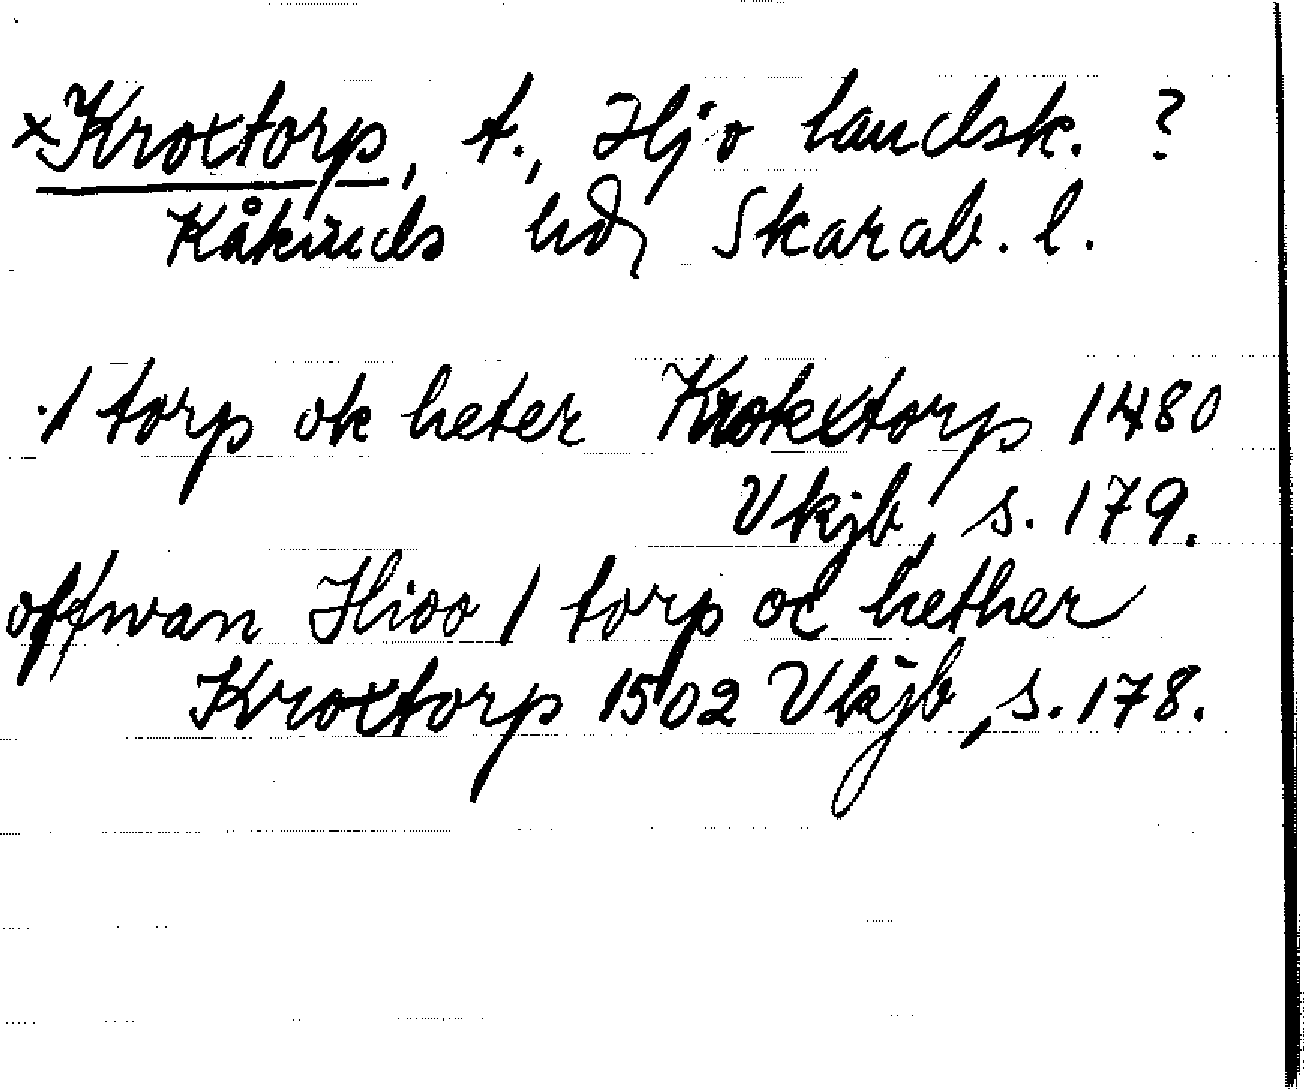 ×Kroxtorp, t., Hjo landsk. ?
Kåkinds hd, Skarab. l.
1 torp ok heter Krokxtorp 1480
Vkjb, s. 179.
offwan Hioo 1 torp oc hether
Kroxtorp 1502 Vkjb, s. 178.